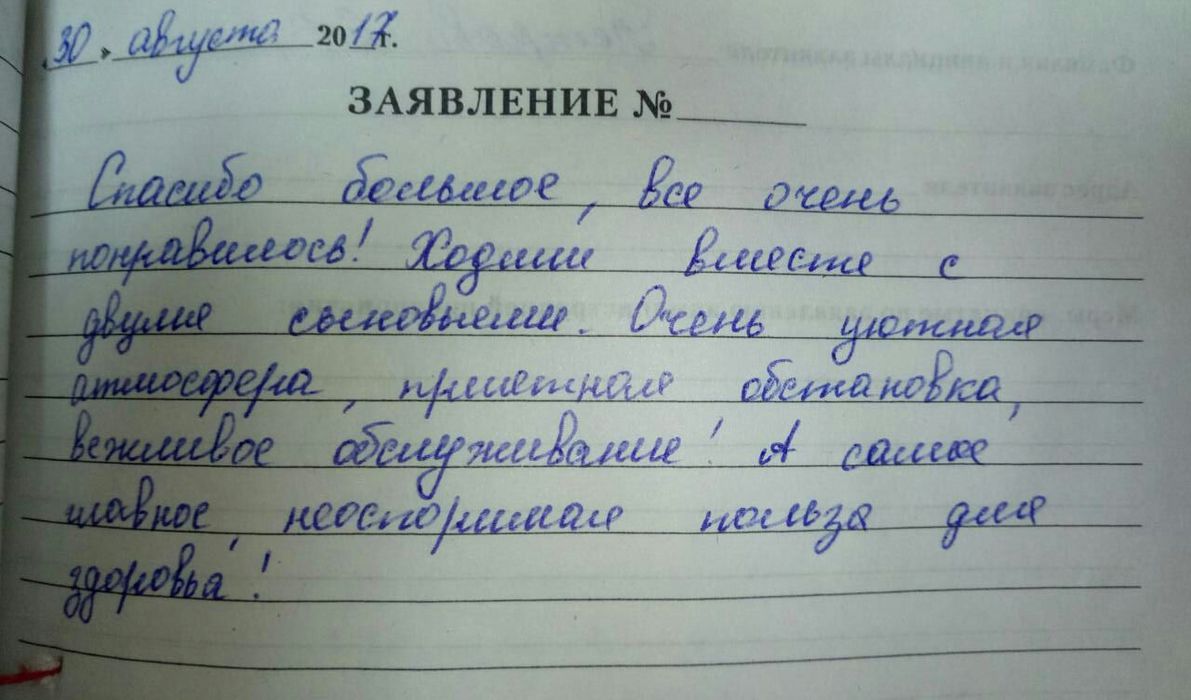 «30» августа 2017 г.
ЗАЯВЛЕНИЕ №
Спасибо большое, все очень
понравилось! Ходили вместе с
двумя сыновьями. Очень уютная
атмосфера, приятная обстановка,
вежливое обслуживание! А самое
главное, неоспоримая польза для
здоровья!